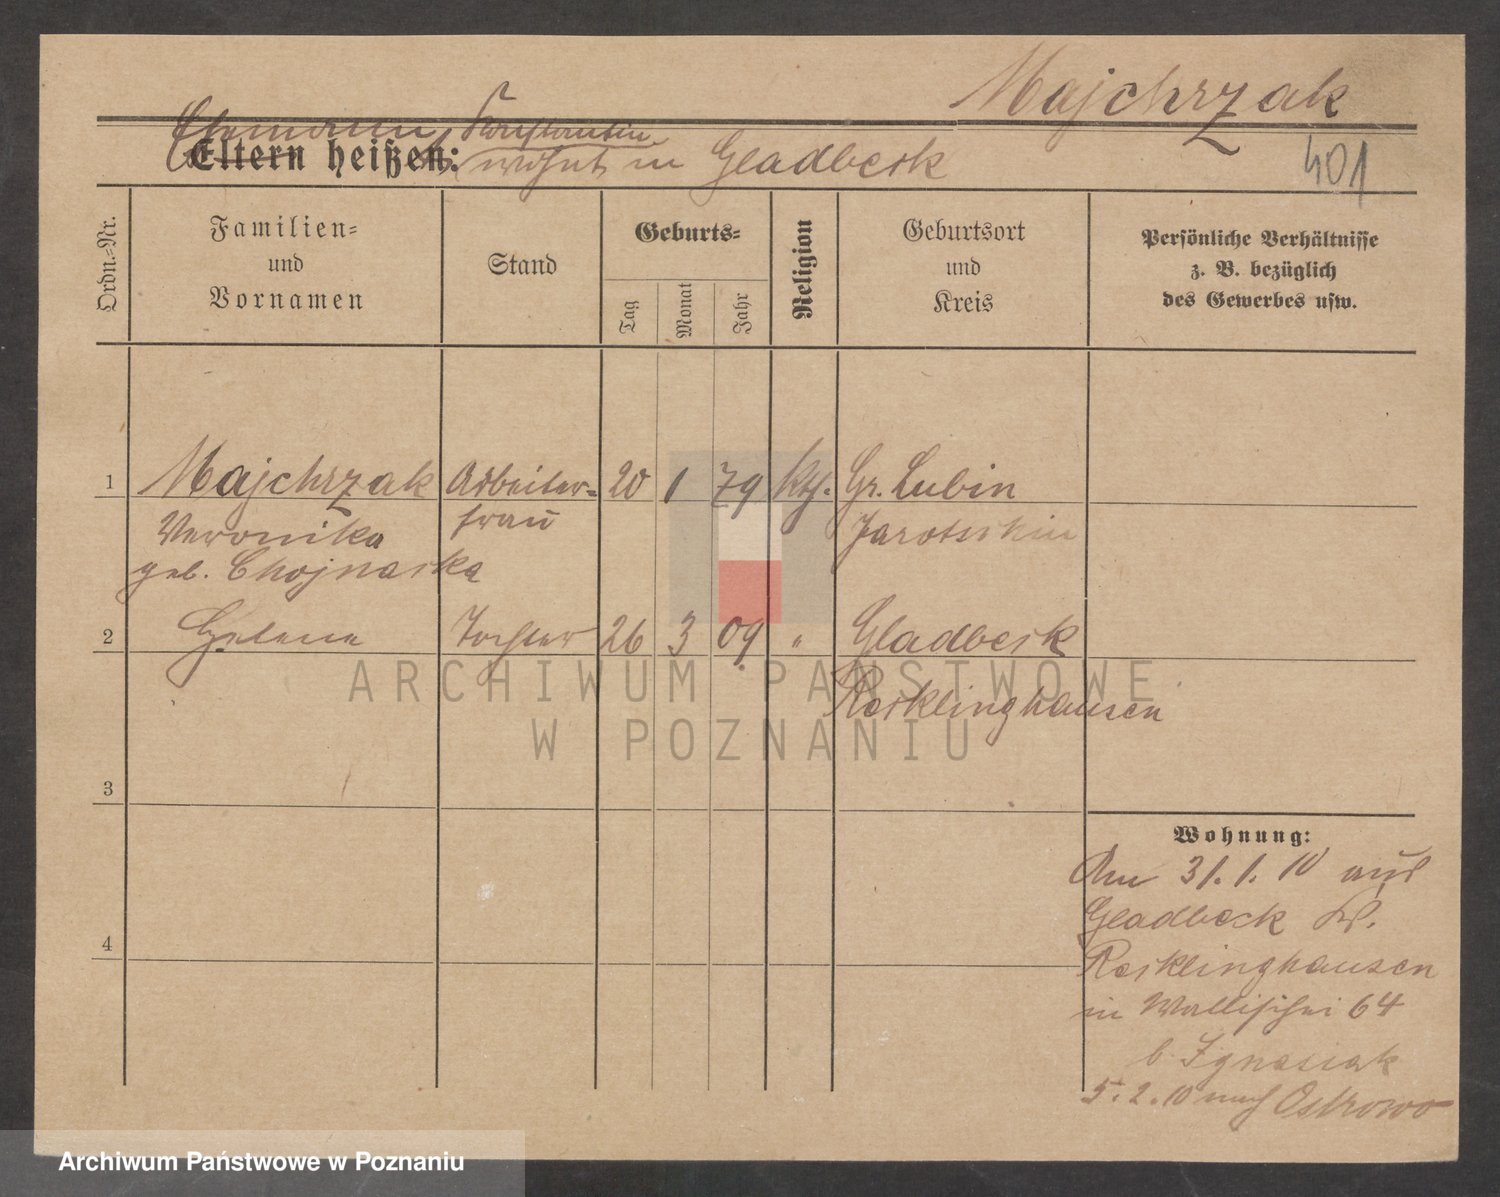 Majchrzak
Ehemann Konstantin
Eltern heißen: wohnt in Gladbeck
401
Ordn.-Nr.
Familien-
und
Vornamen
Stand
Geburts-
Tag
Monat
Jahr
Religion
Geburtsort
und
Kreis
Persönliche Verhältnisse
z. B. bezüglich
des Gewerbes usw.
1 Majchrzak Arbeiter- 20 1 79 kth. Gr. Lubin
Veronika frau Jarotschin
geb. Chojnacka
2 Helene Tochter 26 3 09 " Gladbeck
Recklinghausen
3
4
Wohnung:
Am 31.1.10 aus
Gladbeck Kr.
Recklinghausen
in Wallischei 64
b. Ignasiak
5.2.10 nach Ostrowo
ARCHIWUM PAŃSTWOWE
W POZNANIU
Archiwum Państwowe w Poznaniu